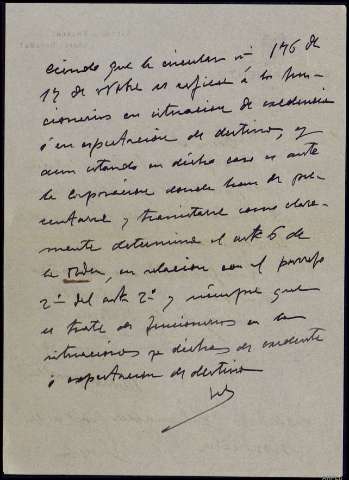 ciendo que la circular nº 176 de
17 de octubre se refiere á los fun-
cionarios en situacion de excedencia
ó en expectacion de destino, y
aun estando en dicho caso es ante
la Corporacion donde han de pre-
sentarse y tramitarse como clara-
mente determina el artº 6 de
la Orden, en relacion con el parrafo
2º del artº 2º y siempre que
se trate de funcionarios en las
situaciones ya dichas de excedente
ó expectacion de destino